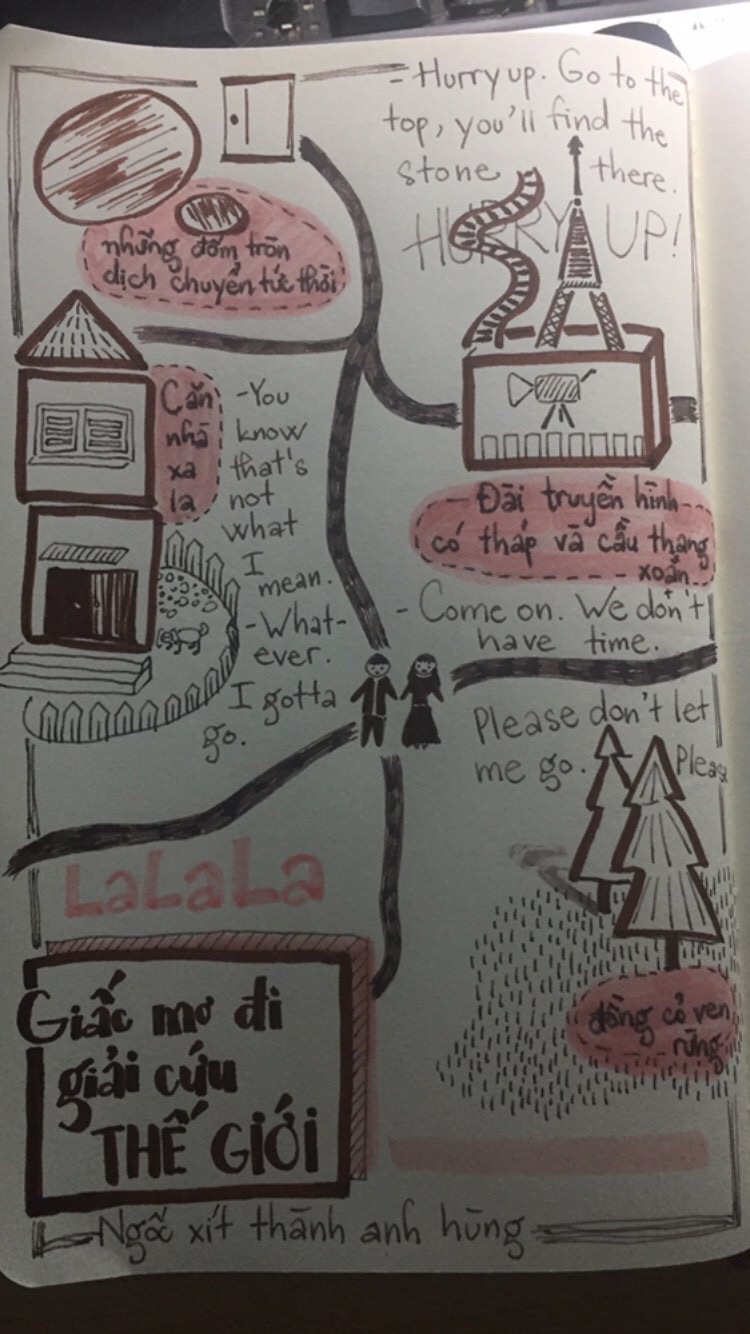 - Hurry up. Go to the
top, you'll find the
stone there.
HURRY UP!
những đốm tròn
dịch chuyển tức thời
Căn
nhà
xa
lạ
- You
know
that's
not
what
I
mean.
- What-
ever.
I gotta
go.
Đài truyền hình
có tháp và cầu thang
xoắn
- Come on. We don't
have time.
Please don't let
me go. Please
LaLaLa
đồng cỏ ven
rừng
Giấc mơ đi
giải cứu
THẾ GIỚI
Ngốc xít thành anh hùng